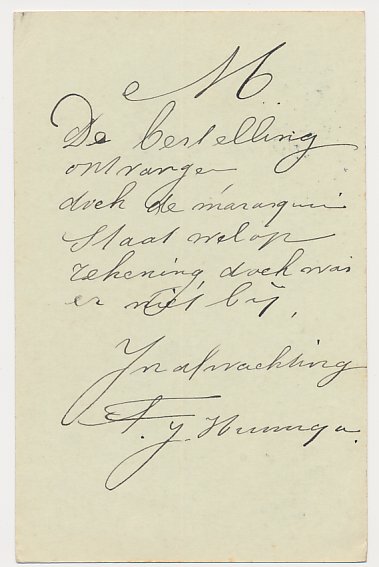 M
De bestelling
ontvangen
doch de marasquin
staat wel op
rekening doch was
er niet bij,
In afwachting